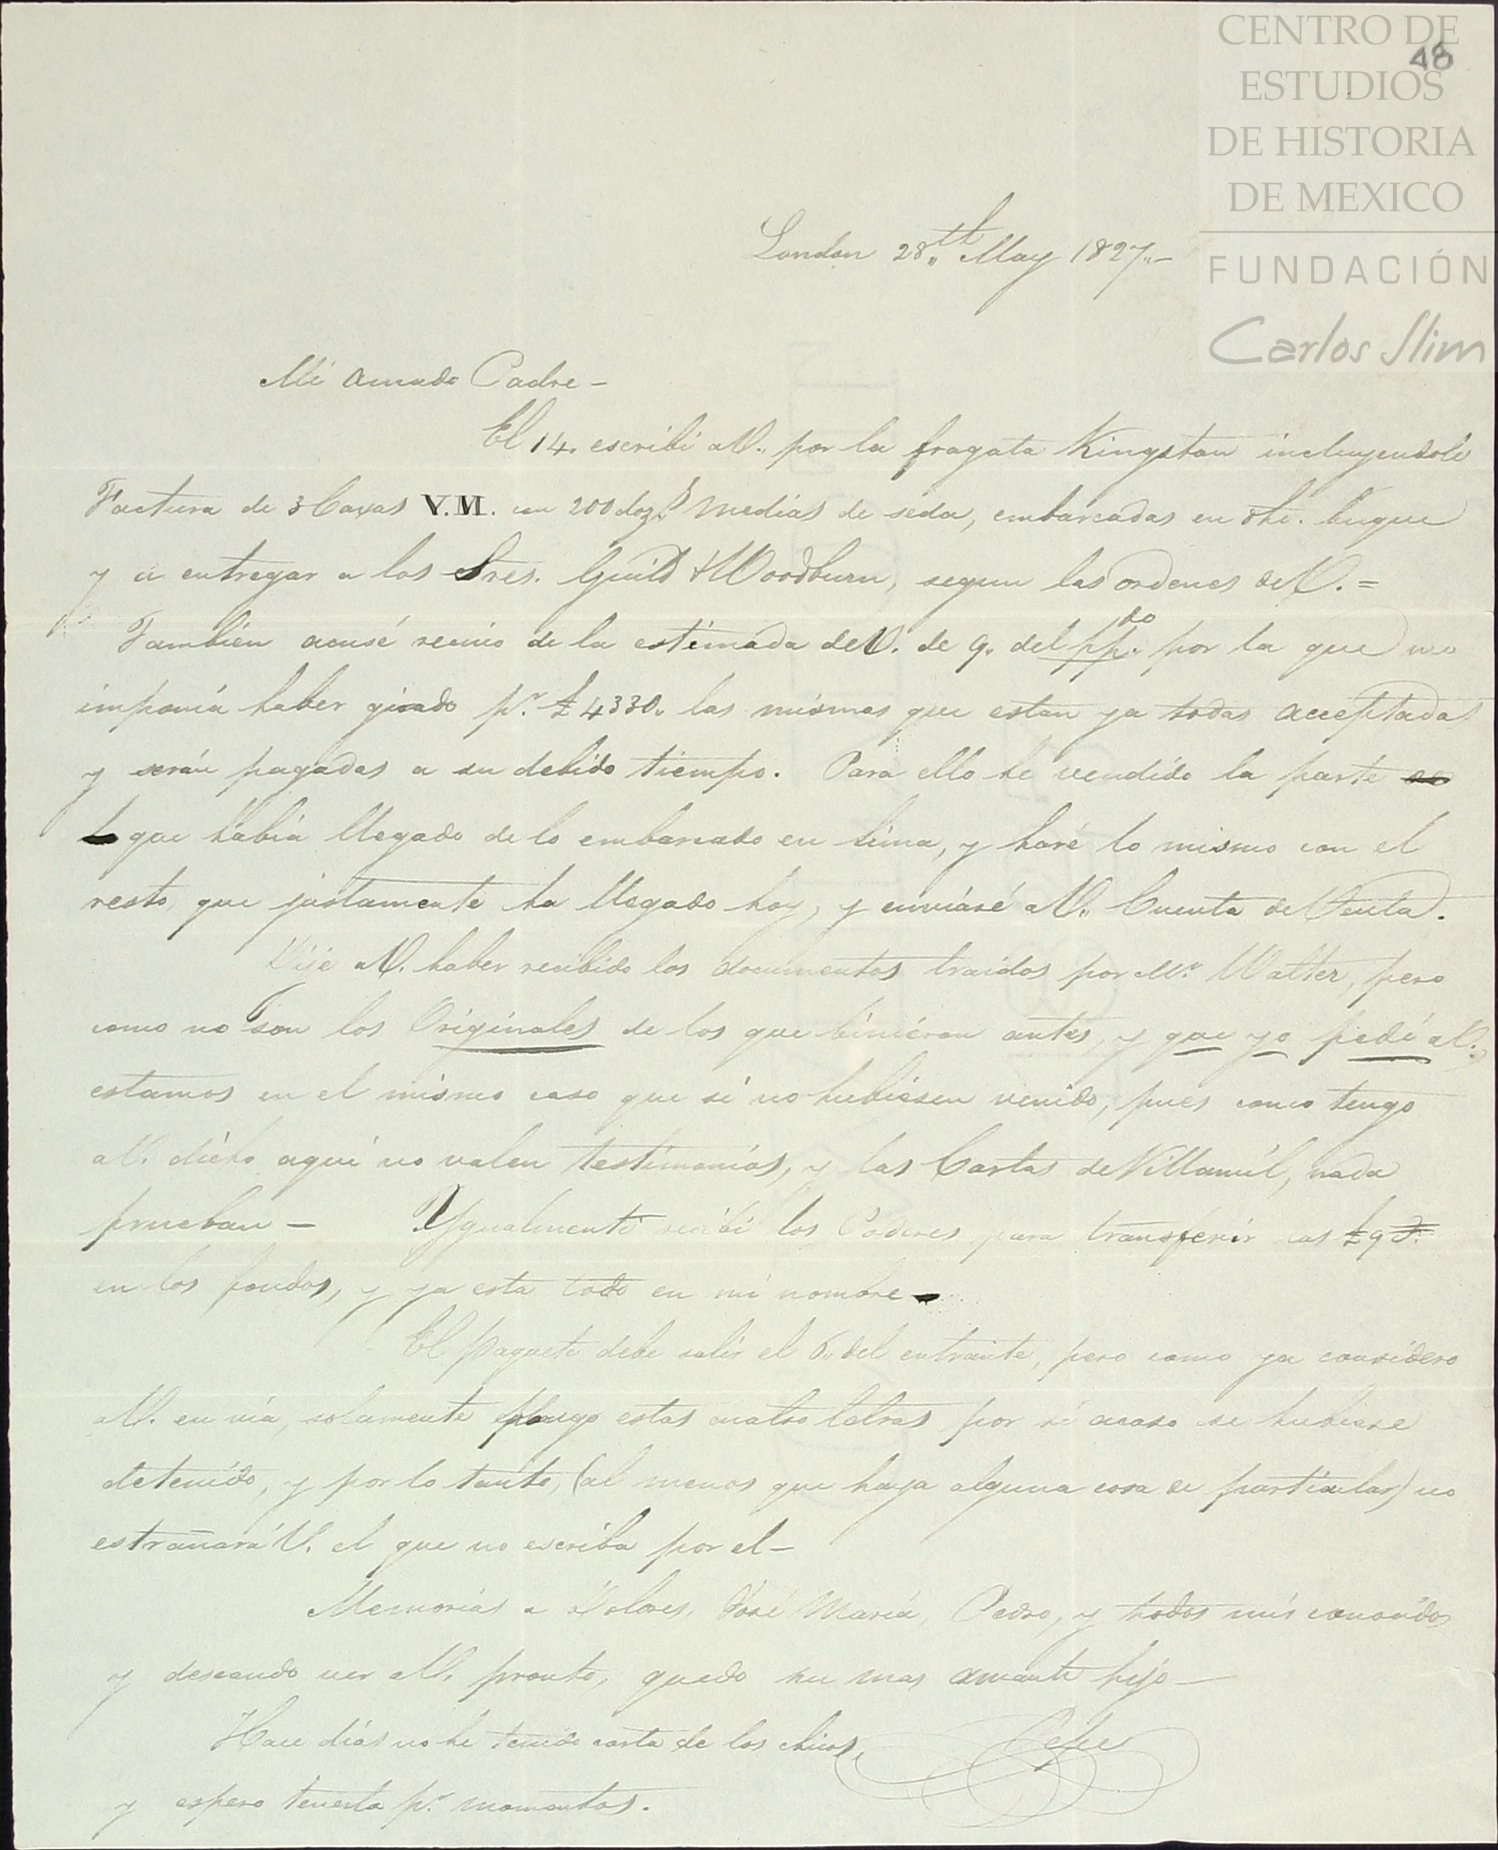 CENTRO DE
ESTUDIOS
DE HISTORIA
DE MEXICO
FUNDACIÓN
Carlos Slim
48
London 28,,th May 1827.,-
Mi amado Padre-
El 14. escribi a V. por la fragata Kingston incluyendole
Factura de 3 Caxas Y.M. con 200 dozs medias de seda, embarcadas en dho. buque
y a entregar a los Sres. Guild & Woodburn, segun las ordenes de V. =
Tambien acusé recivo de la estimada de V. de 9. del ppdo. por la que me
imponia haber girado pr. £4330. las mismas que estan ya todas acceptadas
y serán pagadas a su debido tiempo. Para ello he vendido la parte
que habia llegado de lo embarcado en Lima, y haré lo mismo con el
resto, que justamente ha llegado hoy, y enviaré a V. Cuenta de Venta.
Dije a V. haber recibido los documentos traidos por Mr. Walter, pero
como no son los Originales de los que biniéron antes, y que yo pedi a V.,
estamos en el mismo caso que si no hubiesen venido, pues como tengo
a V. dicho aqui no valen testimonios, y las Cartas de Villamil, nada
prueban - Ygualmente recibi los Poderes para transferir las £9
en los fondos, y ya esta todo en mi nombre
El Paquete debe salir el 6. del entrante, pero como ya considero
a V. en via, solamente pongo estas cuatro letras por si acaso se hubiere
detenido, y por lo tanto, (al menos que haya alguna cosa de particular) no
estrañará V. el que no escriba por el-
Memorias a Dolores, José Maria, Pedro, y todos mis conocidos
y deseando ver a V. pronto, quedo su mas amante hijo-
Pepe
Hace dias no he tenido carta de los chicos,
y espero tenerla pr. momentos.